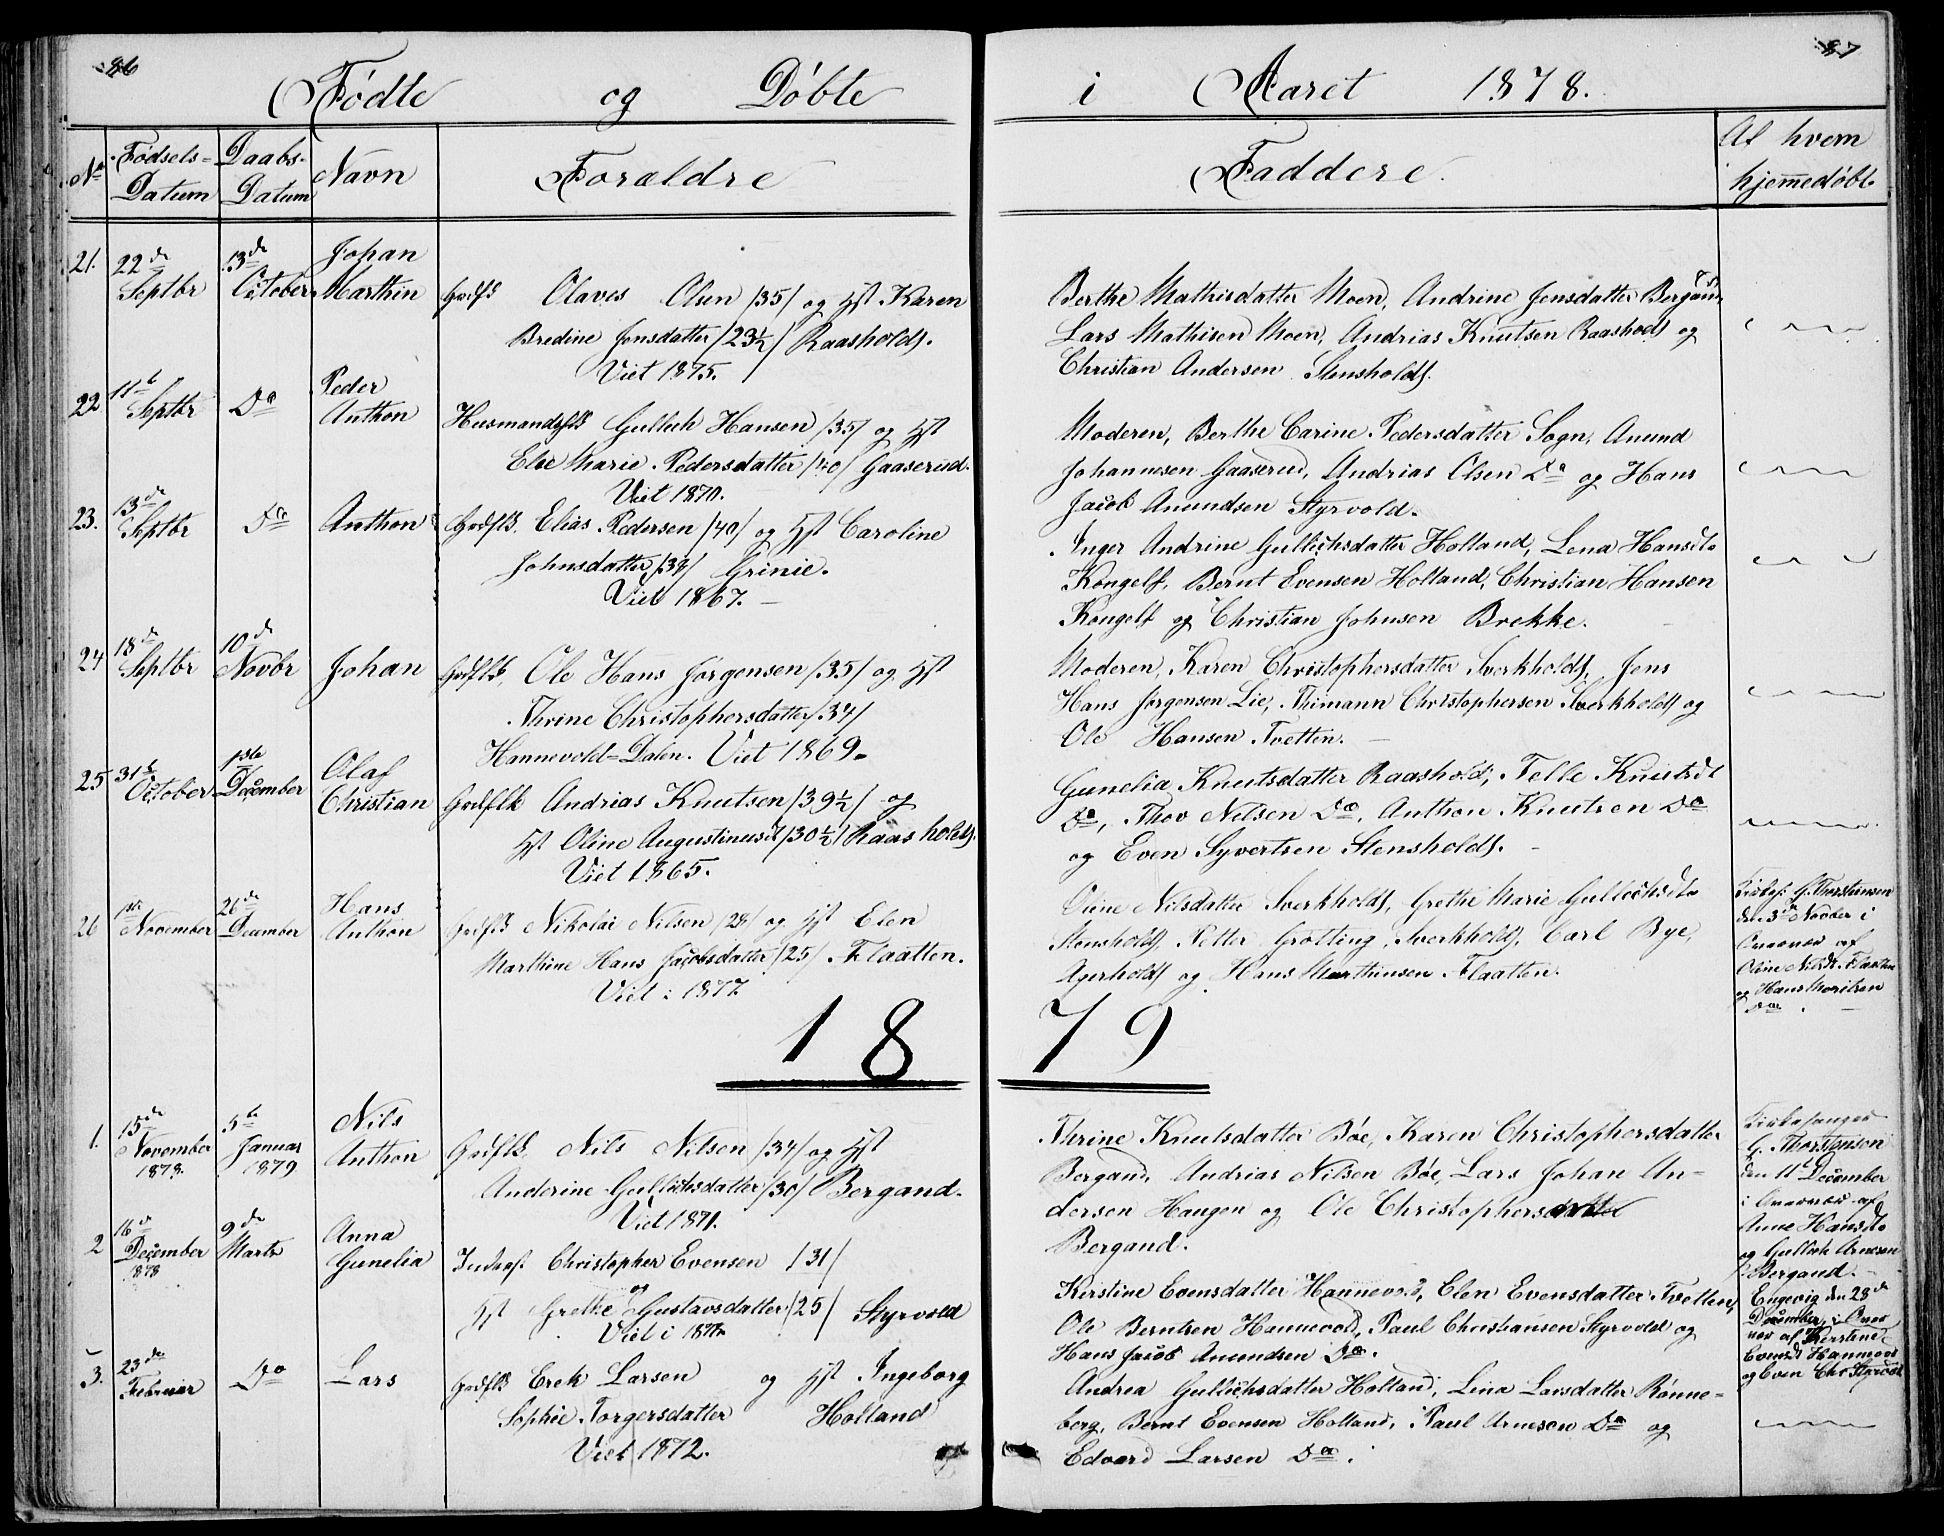 86
87
Födte og Döbte i Aaret 1878.
No Födsels= Datum Daabs- Datum Navn Forældre Faddere. Af hvem hjemmedöbt.
21. 22de Septbr 13de October Johan Marthin Grdfk Olaves Olsen /35/ og Hst Karen
Bredine Jensdatter /23½/ Raasholdt.
Viet 1875.
Berthe Mathisdatter Moen, Andrine Jensdatter Bergand
Lars Mathisen Moen, Andrias Knutsen Raasholdt og
Christian Andersen Stensholdt.
22. 11te Septbr Do Peder Anthon Husmandsflk Gullich Hansen /35/ og Hst
Else Marie Pedersdatter /40/ Gaaserud.
Viet 1870.
Moderen, Berthe Carine Pedersdatter Sogn, Anund
Johannesen Gaaserud, Andrias Olsen Do og Hans
Jacob Anundsen Styrvold.
23. 13de Septbr Do Anthon Grdflk. Elias Pedersen /40/ og Hst Caroline
Johnsdatter /38/ Grinie.
Viet 1867.
Inger Andrine Gullichsdatter Holland, Lena Hansdtr
Kongelf, Bernt Evensen Holland, Christian Hansen
Kongelf og Christian Johnsen Brekke.
24 18de Septbr 10de Novbr Johan Grdflk, Ole Hans Jørgensen /35/ og Hst
Thrine Christophersdatter /34/
Hannevold=Dalen. Viet 1869.
Moderen, Karen Christophersdatter Sverkholdt, Jens
Hans Jørgensen Lie, Thimann Christophersen Sverkholdt og
Ole Hansen Tvetten.
25 31te October 1ste December Olaf Christian Grdflk Andrias Knutsen /39½/ og
Hst Oline Augustinusdt /30½/ Raasholdt.
Viet 1865.
Gunelia Knutsdatter Raashold, Telle Knutsdt
Do, Thov Nilsen Do, Anthon Knutsen Do
og Even Syvertsen Stensholdt.
26 1ste November 26de December Hans Anthon Grdflk Nikolai Nilsen /28/ og Hst Elen
Marthine Hans Jacobsdatter /25/ Flaatten.
Viet: 1877
Oline Nilsdatter Sverkholdt, Grethe Marie Gullichsdtr
Stensholdt, Petter Grotting, Sverkholdt, Carl Bye,
Agerholdt og Hans Marthinsen Flaatten.
G. Thorstensen
den 3de Novber i
Overvær af
Oline Nilsdt Flaatten
og Hans
Do
1879
1. 15de November 1878. 5te Januar 1879 Nils Anthon Grdflk. Nils Nilsen /34/ og Hst
Anderine Gullichsdatter /30/ Bergand.
Viet 1871.
Thrine Knutsdatter Bøe, Karen Christophersdatter
Bergand, Andrias Nilsen Bøe, Lars Johan An-
dersen Haugen og Ole Christophers
Bergand.
Kirkesanger
G. Thorstensen
den 11te December
i Overvær af
Anne Hansdtr
og Gullich Arnesen
Bergand.
2 16de December 1878 9de Marts Anna Gunelia Indhst Christopher Evensen /31/
og
Hst Grethe Gustavsdatter /25/ Styrvold
Viet i
Kirstine Evensdatter Hannevold, Elen Evensdatter Tvetten,
Ole Berntsen Hannevold, Paul Christiansen Styrvold og
Hans Jacob Anundsen Do.
Engevig den 28de
December i Over
vær af Kirstine
Evensdt Hannevold
og Even Chr Styrvold
3. 23de Februar Do Lars Grdflk Erek Larsen og Hst Ingeborg
Sophie Torgersdatter Holland
Viet 1872.
Andrea Gullichsdatter Holland, Lina Larsdatter Rønne-
berg, Bernt Evensen Holland, Paul Arnesen Do og
Edvard Larsen Do.